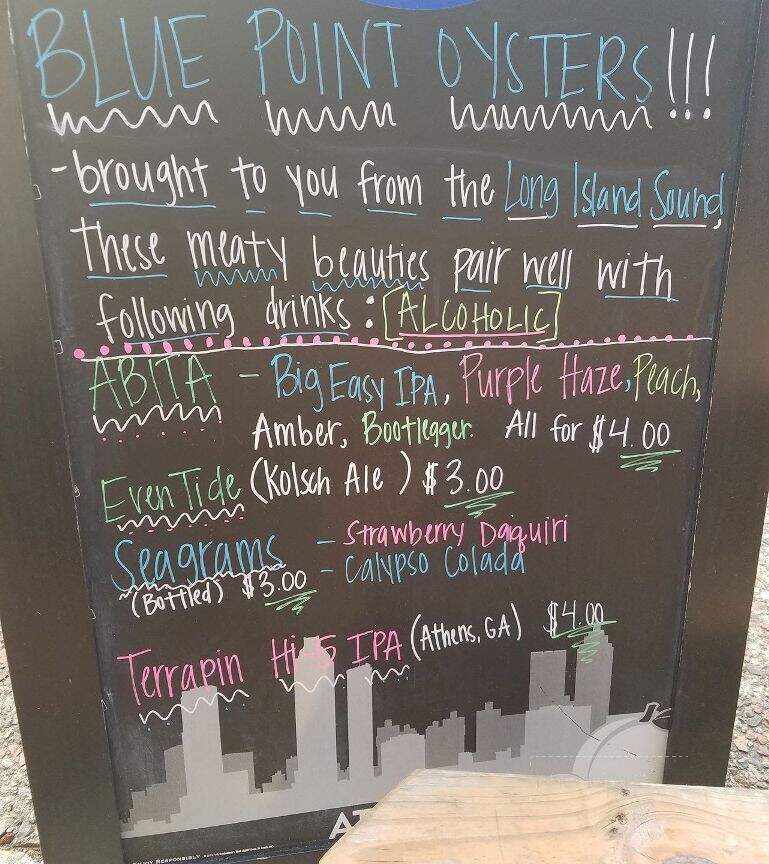 BLUE POINT OYSTERS!!!
-brought to you from the Long Island Sound,
these meaty beauties pair well with
following drinks: [ALCOHOLIC]
ABITA - Big Easy IPA, Purple Haze, Peach,
Amber, Bootlegger. All for $4.00
Even Tide (Kolsch Ale) $3.00
Seagrams - Strawberry Daiquiri
(Bottled) $3.00 - Calypso Colada
Terrapin Hi-5 IPA (Athens, GA) $4.00
RESPONSIBLY